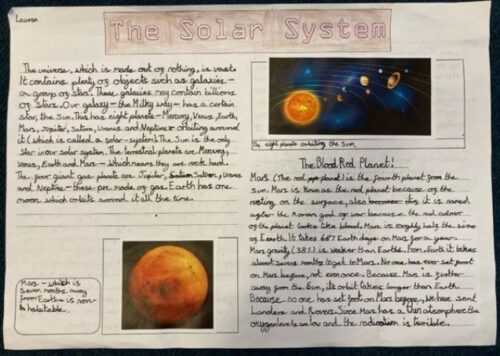 Lauren
The Solar System
The universe, which is made out of nothing, is vast.
It contains plenty of objects such as galaxies –
a group of stars. These galaxies may contain billions
of stars. Our galaxy – the Milky way – has a certain
star, the Sun. This has eight planets – Mercury, Venus, Earth,
Mars, Jupiter, Saturn, Uranus and Neptune – orbiting around
it (which is called a solar-system). The Sun is the only
star in our solar system. The terrestrial planets are Mercury,
Venus, Earth and Mars – which means they are rock hard.
The four giant gas planets are Jupiter, Saturn, Uranus
and Neptune – these are made of gas. Earth has one
moon which orbits around it all the time.
Mars – which is
seven months away
from Earth – is non-
habitable.
The eight planets orbiting the Sun.
The Blood Red Planet!
Mars (The red planet) is the fourth planet from the
sun. Mars is known as the red planet because of the
rusting on the surface, also it is named
after the Roman god of war because the red colour
of the planet looks like blood. Mars is roughly half the size
of Earth. It takes 687 Earth days on Mars for a year.
Mars gravity (38%) is weaker than Earths. From Earth it takes
about seven months to get to Mars. No one has ever set foot
on Mars before, not even once. Because Mars is further
away from the Sun, its orbit takes longer than Earth.
Because no one has set foot on Mars before, we have sent
Landers and Rovers. Since Mars has a thin atmosphere the
oxygen levels are low and the radiation is terrible.